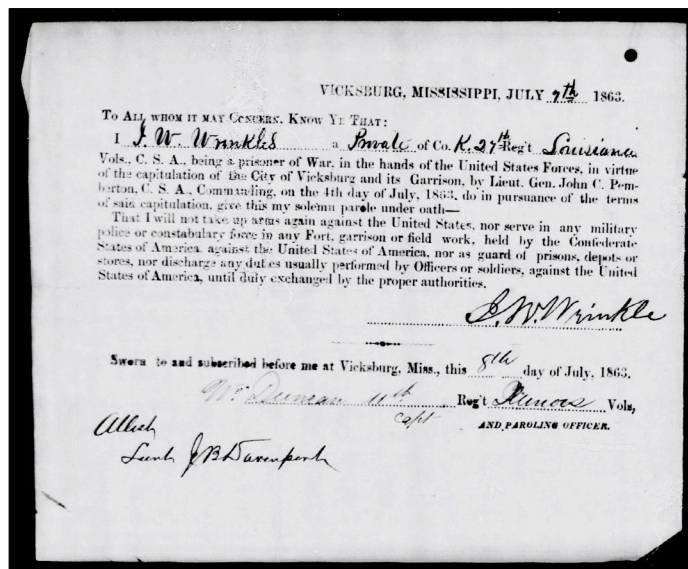 VICKSBURG, MISSISSIPPI, JULY 7th 1863.
TO ALL WHOM IT MAY CONCERN. KNOW YE THAT:
I J. W. Wrinkle a Private of Co. K. 27th Reg't Louisiana
Vols., C. S. A., being a prisoner of War, in the hands of the United States Forces, in virtue
of the capitulation of the City of Vicksburg and its Garrison, by Lieut. Gen. John C. Pem-
berton, C. S. A., Commanding, on the 4th day of July, 1863, do in pursuance of the terms
of said capitulation, give this my solemn parole under oath—
That I will not take up arms again against the United States, nor serve in any military
police or constabulary force in any Fort, garrison or field work, held by the Confederate
States of America, against the United States of America, nor as guard of prisons, depots or
stores, nor discharge any duties usually performed by Officers or soldiers, against the United
States of America, until duly exchanged by the proper authorities.
J. W. Wrinkle
Sworn to and subscribed before me at Vicksburg, Miss., this 8th day of July, 1863.
Wm Duncan 11th Reg't Illinois Vols,
Capt
AND PAROLING OFFICER.
Attest
Lieut J B Davenport